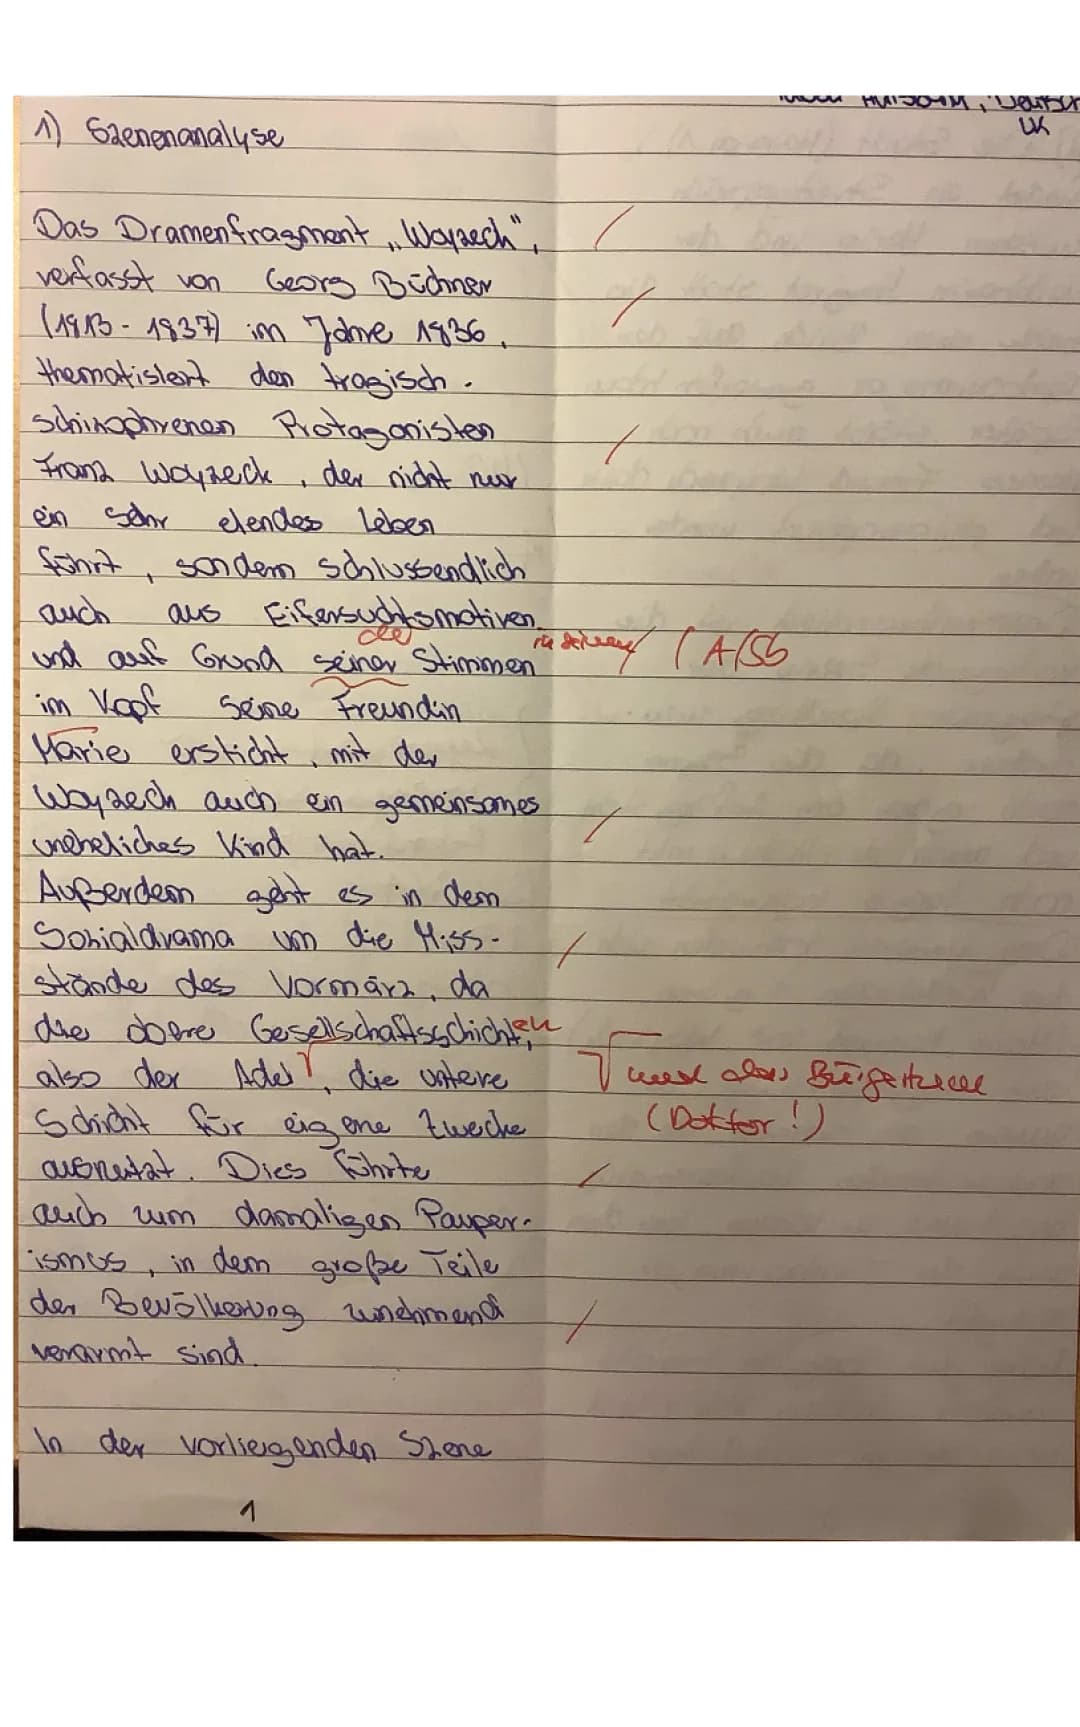 Deutsch
LK
1) Szenenanalyse
Das Dramenfragment „Woyzeck",
verfasst von Georg Büchner
(1813 - 1837) im Jahre 1836,
thematisiert den tragisch-
schizophrenen Protagonisten
Franz Woyzeck, der nicht nur
ein sehr elendes Leben
führt, sondern schlussendlich
auch aus Eifersuchtsmotiven
der in seinem / (A/Sb
und auf Grund seiner Stimmen
im Kopf seine Freundin
Marie ersticht, mit der
Woyzeck auch ein gemeinsames
uneheliches Kind hat.
Außerdem geht es in dem
Sozialdrama um die Miss-
stände des Vormärz, da
die obere Gesellschaftsschichten,
also der Adel√, die untere √ und das Bürgertum
Schicht für eigene Zwecke (Doktor!)
ausnutzt. Dies führte
auch zum damaligen Pauper-
ismus, in dem große Teile
der Bevölkerung zunehmend
verarmt sind.
In der vorliegenden Szene
1